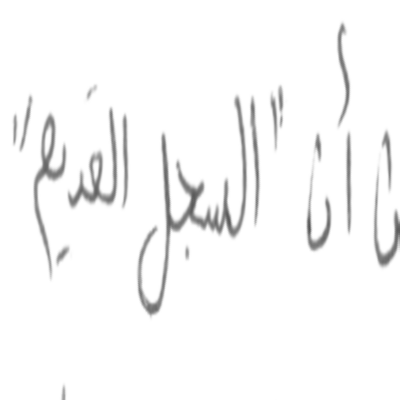 أن "السجل القديم"